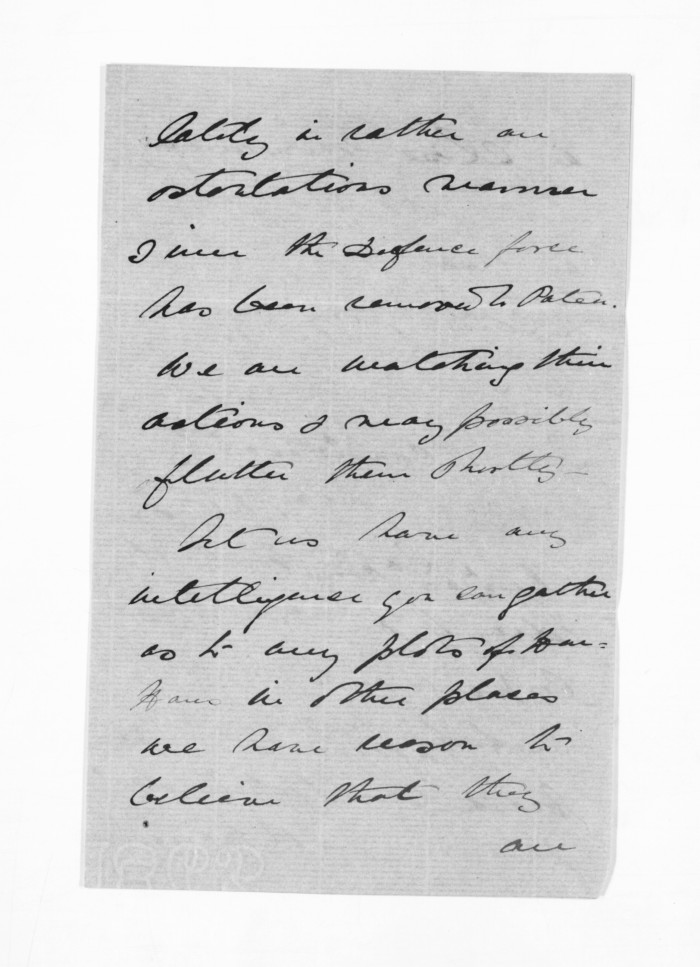 lately in rather an
ostentatious manner
since the Defence force
has been removed to Patea.
We are watching their
actions & may possibly
flutter them shortly —
Let us have any
intelligence you can gather
as to any plots of Hau=
Haus in other places
we have reason to
believe that they
are